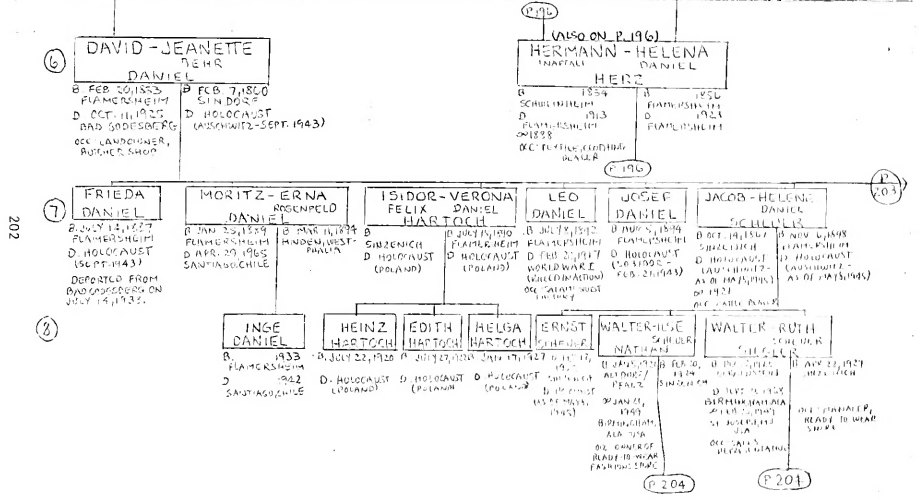 P.196
(ALSO ON P.196)
6
DAVID - JEANETTE
DEHR
DANIEL
B. FEB 20, 1853
FLAMERSHEIM
D. OCT. 11, 1925
BAD GODESBERG
OCC. LANDOWNER,
BUTCHER SHOP
B FEB. 7, 1860
SINDORF
D HOLOCAUST
(AUSCHWITZ-SEPT. 1943)
HERMANN - HELENA
NAFTALI DANIEL
HERZ
B 1834
D 1913
FLAMERSHEIM
B 1856
FLAMERSHEIM
D
FLAMERSHEIM
P.196
P. 203
202
7
FRIEDA
DANIEL
B. JULY 14, 1887
FLAMERSHEIM
D. HOLOCAUST
(SEPT. 1943)
DEPORTED FROM
BAD GODESBERG ON
MORITZ - ERNA
ROSENFELD
DANIEL
B JAN 25, 1889
FLAMERSHEIM
D APR. 29, 1965
SANTIAGO, CHILE
B MAR 11, 1894
MINDEN, WEST-
PHALIA
ISIDOR - VERONA
FELIX DANIEL
HARTOCH
B
SINZENICH
D HOLOCAUST
(POLAND)
B JULY 14, 1890
FLAMERSHEIM
D HOLOCAUST
(POLAND)
LEO
DANIEL
B JULY 8, 1892
FLAMERSHEIM
D FEB 21, 1917
WORLD WAR I
(KILLED IN ACTION)
JOSEF
DANIEL
B AUG 5, 1894
FLAMERSHEIM
D HOLOCAUST
(SOBIBOR-
JACOB - HELENE
DANIEL
SCHEUER
B OCT. 14, 1867
SINZENICH
D HOLOCAUST
(AUSCHWITZ-
AS OF MAY 8, 1945)
1921
B NOV 6, 1898
FLAMERSHEIM
D HOLOCAUST
(AUSCHWITZ-
AS OF MAY 8, 1945)
8
INGE
DANIEL
B. 1933
FLAMERSHEIM
D 1942
SANTIAGO, CHILE
HEINZ
HARTOCH
B, JULY 22, 1920
D. HOLOCAUST
(POLAND)
EDITH
HARTOCH
D. HOLOCAUST
(POLAND)
HELGA
HARTOCH
JAN 17, 1927
D HOLOCAUST
(POLAND)
ERNST
SCHEUER
SINZENICH
WALTER - ILSE
SCHEUER
NATHAN
ALTDORF/
PFALZ
JAN 21,
1949
BIRMINGHAM,
ALA. USA
OCC. OWNER OF
READY TO WEAR
FASHION STORE
B FEB 20,
1924
SINZENICH
P 204
WALTER - RUTH
SCHEUER
SIEGLER
BIRMINGHAM, ALA
ST JOSEPH, MO
USA
OCC. SALES
REPRESENTATIVE
B APR 22, 1927
SINZENICH
OCC. MANAGER,
READY TO WEAR
STORE
P 204